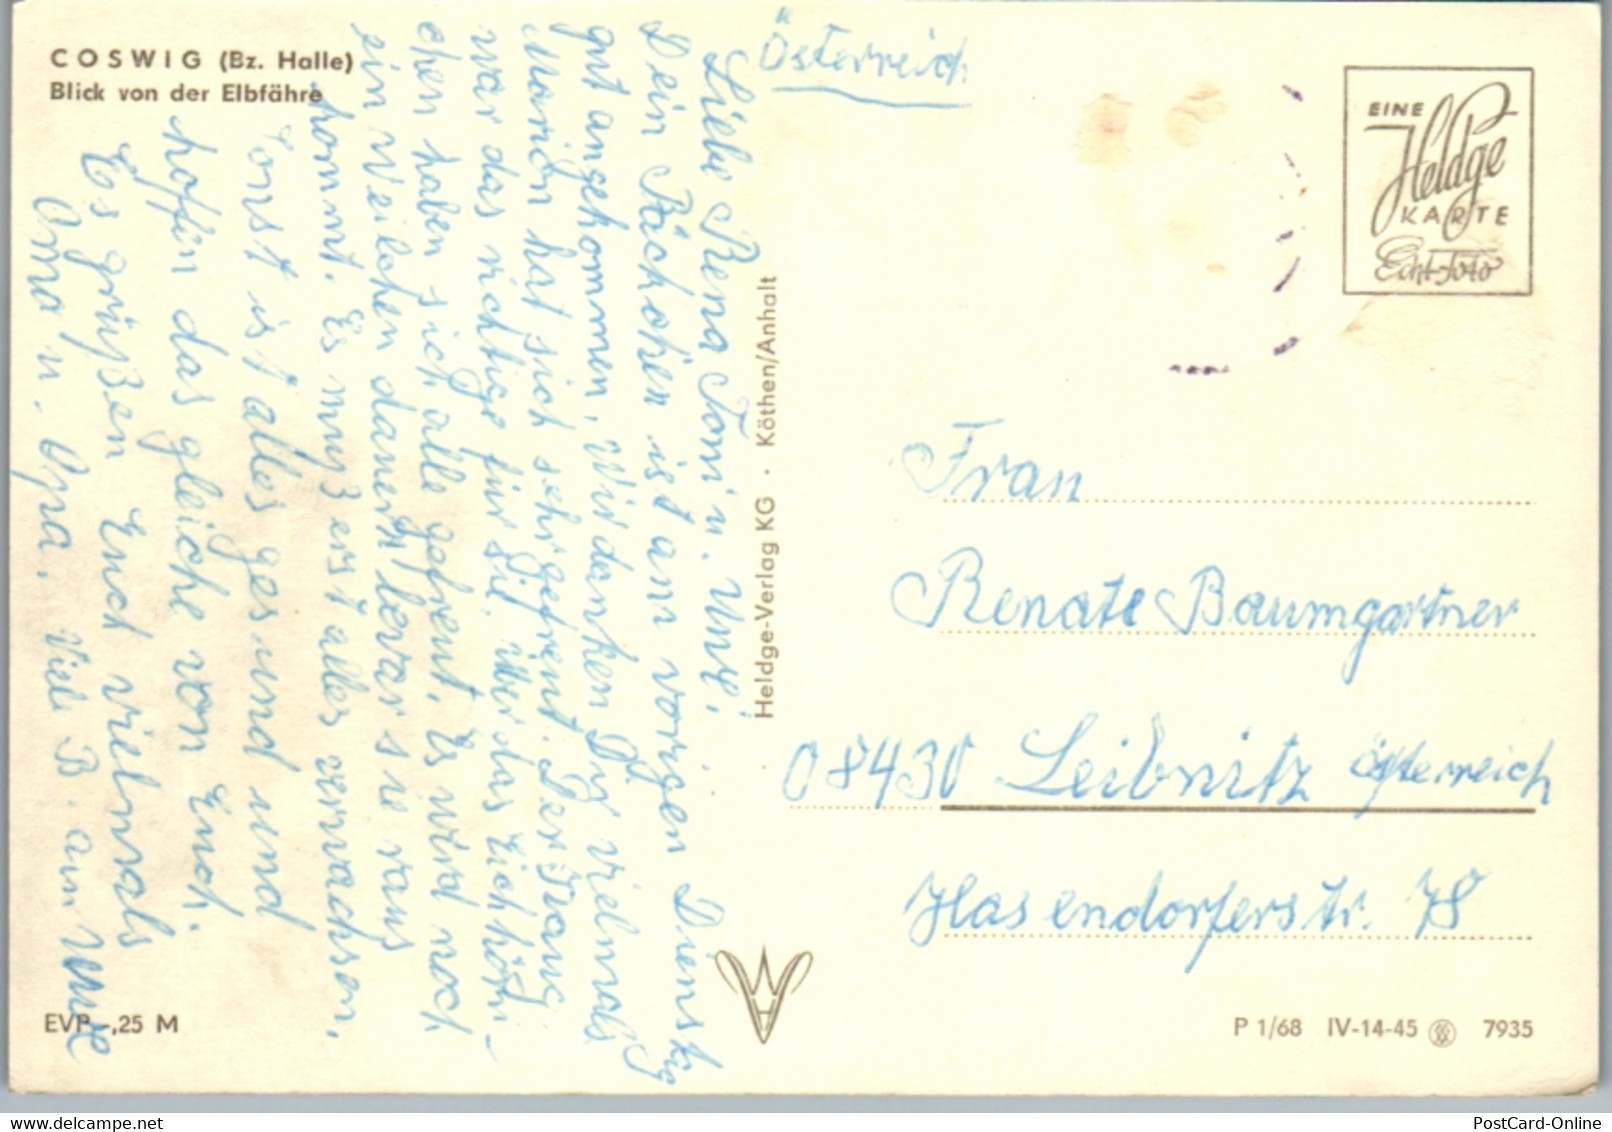 COSWIG (Bz. Halle)
Blick von der Elbfähre
Liebe Rena Tomi u. Umi!
Dein Päckchen ist am vorigen Dienstg
gut angekommen, Wir danken Dir vielmals
Marion hat sich sehr gefreut. Der
war das richtige für sie. Über das Eichhörn-
chen haben sich alle gefreut. Es wird noch
ein Weilchen dauern bevor sie raus
kommt. Es muß erst alles verwachsen.
Sonst ist alles gesund und
hoffen das gleiche von Euch.
Es grüßen Euch vielmals
Oma u. Opa. Viel B. am
Österreich
EINE
Heldge
KARTE
Echt-Foto
Heldge-Verlag KG · Köthen/Anhalt
Frau
Renate Baumgartner
08430 Leibnitz Österreich
Hasendorferstr. 78
EVP -,25 M
P 1/68 IV-14-45 7935
PostCard-Online